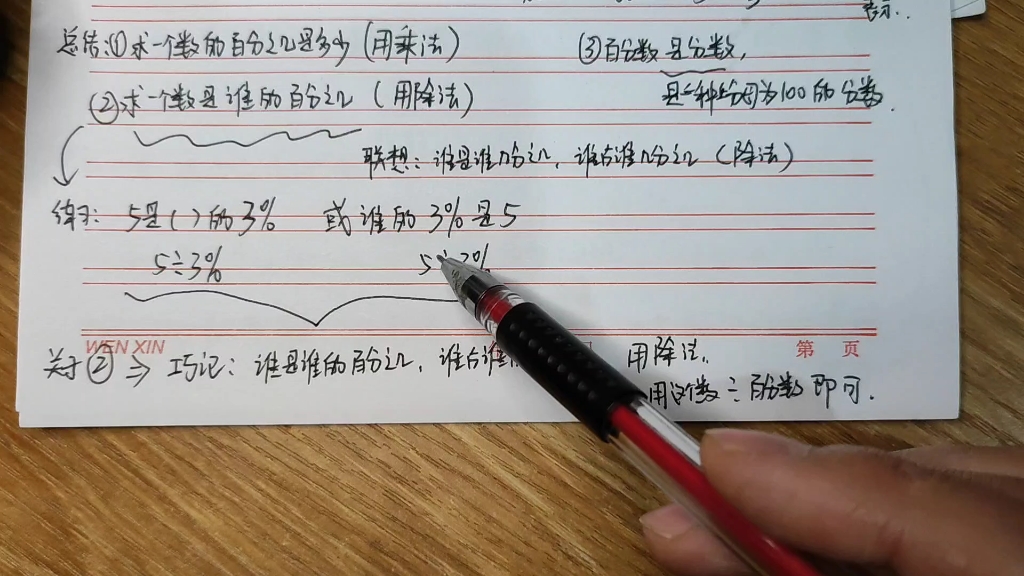 表示.
总结:①求一个数的百分之几是多少(用乘法)
③百分数是分数,
②求一个数是谁的百分之几(用除法)
是一种分母为100的分数.
联想:谁是谁几分之几,谁占谁几分之几(除法)
练习: 5是( )的3% 或谁的3%是5
5÷3% 5÷3%
WENXIN 第 页
关于②⇒巧记:谁是谁的百分之几,谁占谁 用除法.
用这个数÷百分数即可.